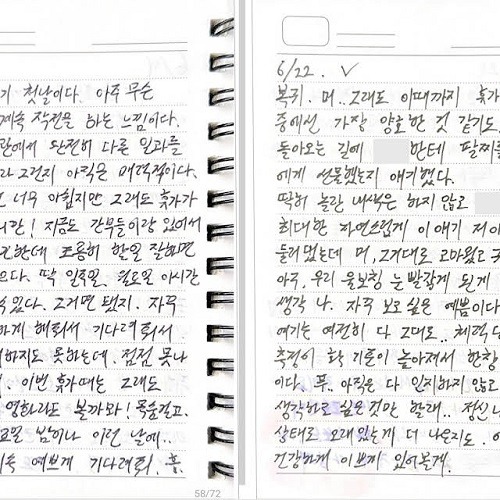 기 첫날이다. 아주 무슨
계속 작전을 하는 느낌이다.
관에서 완전히 다른 일과를
라 그런지 아직은 매력적이다.
너무 아쉽지만 그래도 휴가가
니깐! 지금도 간부들이랑 있어서
한데 조용히 할일 잘하면
은다. 딱 일주일. 월요일 이시간
있다. 그거면 됐지. 자꾸
하게 해줘서 기다려줘서.
하지도 못하는데. 점점 못나
이번 휴가때는 그래도
영화라도 볼까와! 목숨걸고.
요일 밤이나 이런 날에..
속 예쁘게 기다려줘. 흥.
58/72
6/22. ✓
복귀. 머.. 그래도 이때까지 휴가
중에선 가장 양호한 것 같기도
돌아오는 길에 한테 팔찌를
에게 선물했는지 얘기했다.
딱히 놀란 내색은 하지 않고
최대한 자연스럽게 이 얘기 저
둘러댔는데 머, 그거대로 고마웠고
아주, 우리 울보찡 눈 빨갛게 된게
생각 나. 자꾸 보고싶은 예쁨이다
여기는 여전히 다 그대로.. 체력
측정이 확 기준이 높아져서 한창
이다. 푸.. 아직은 다 잊지않고
생각하고 싶은것만 할래..
상태로 오래있는게 더 나은지도.
건강하게 이쁘게 있어볼게.